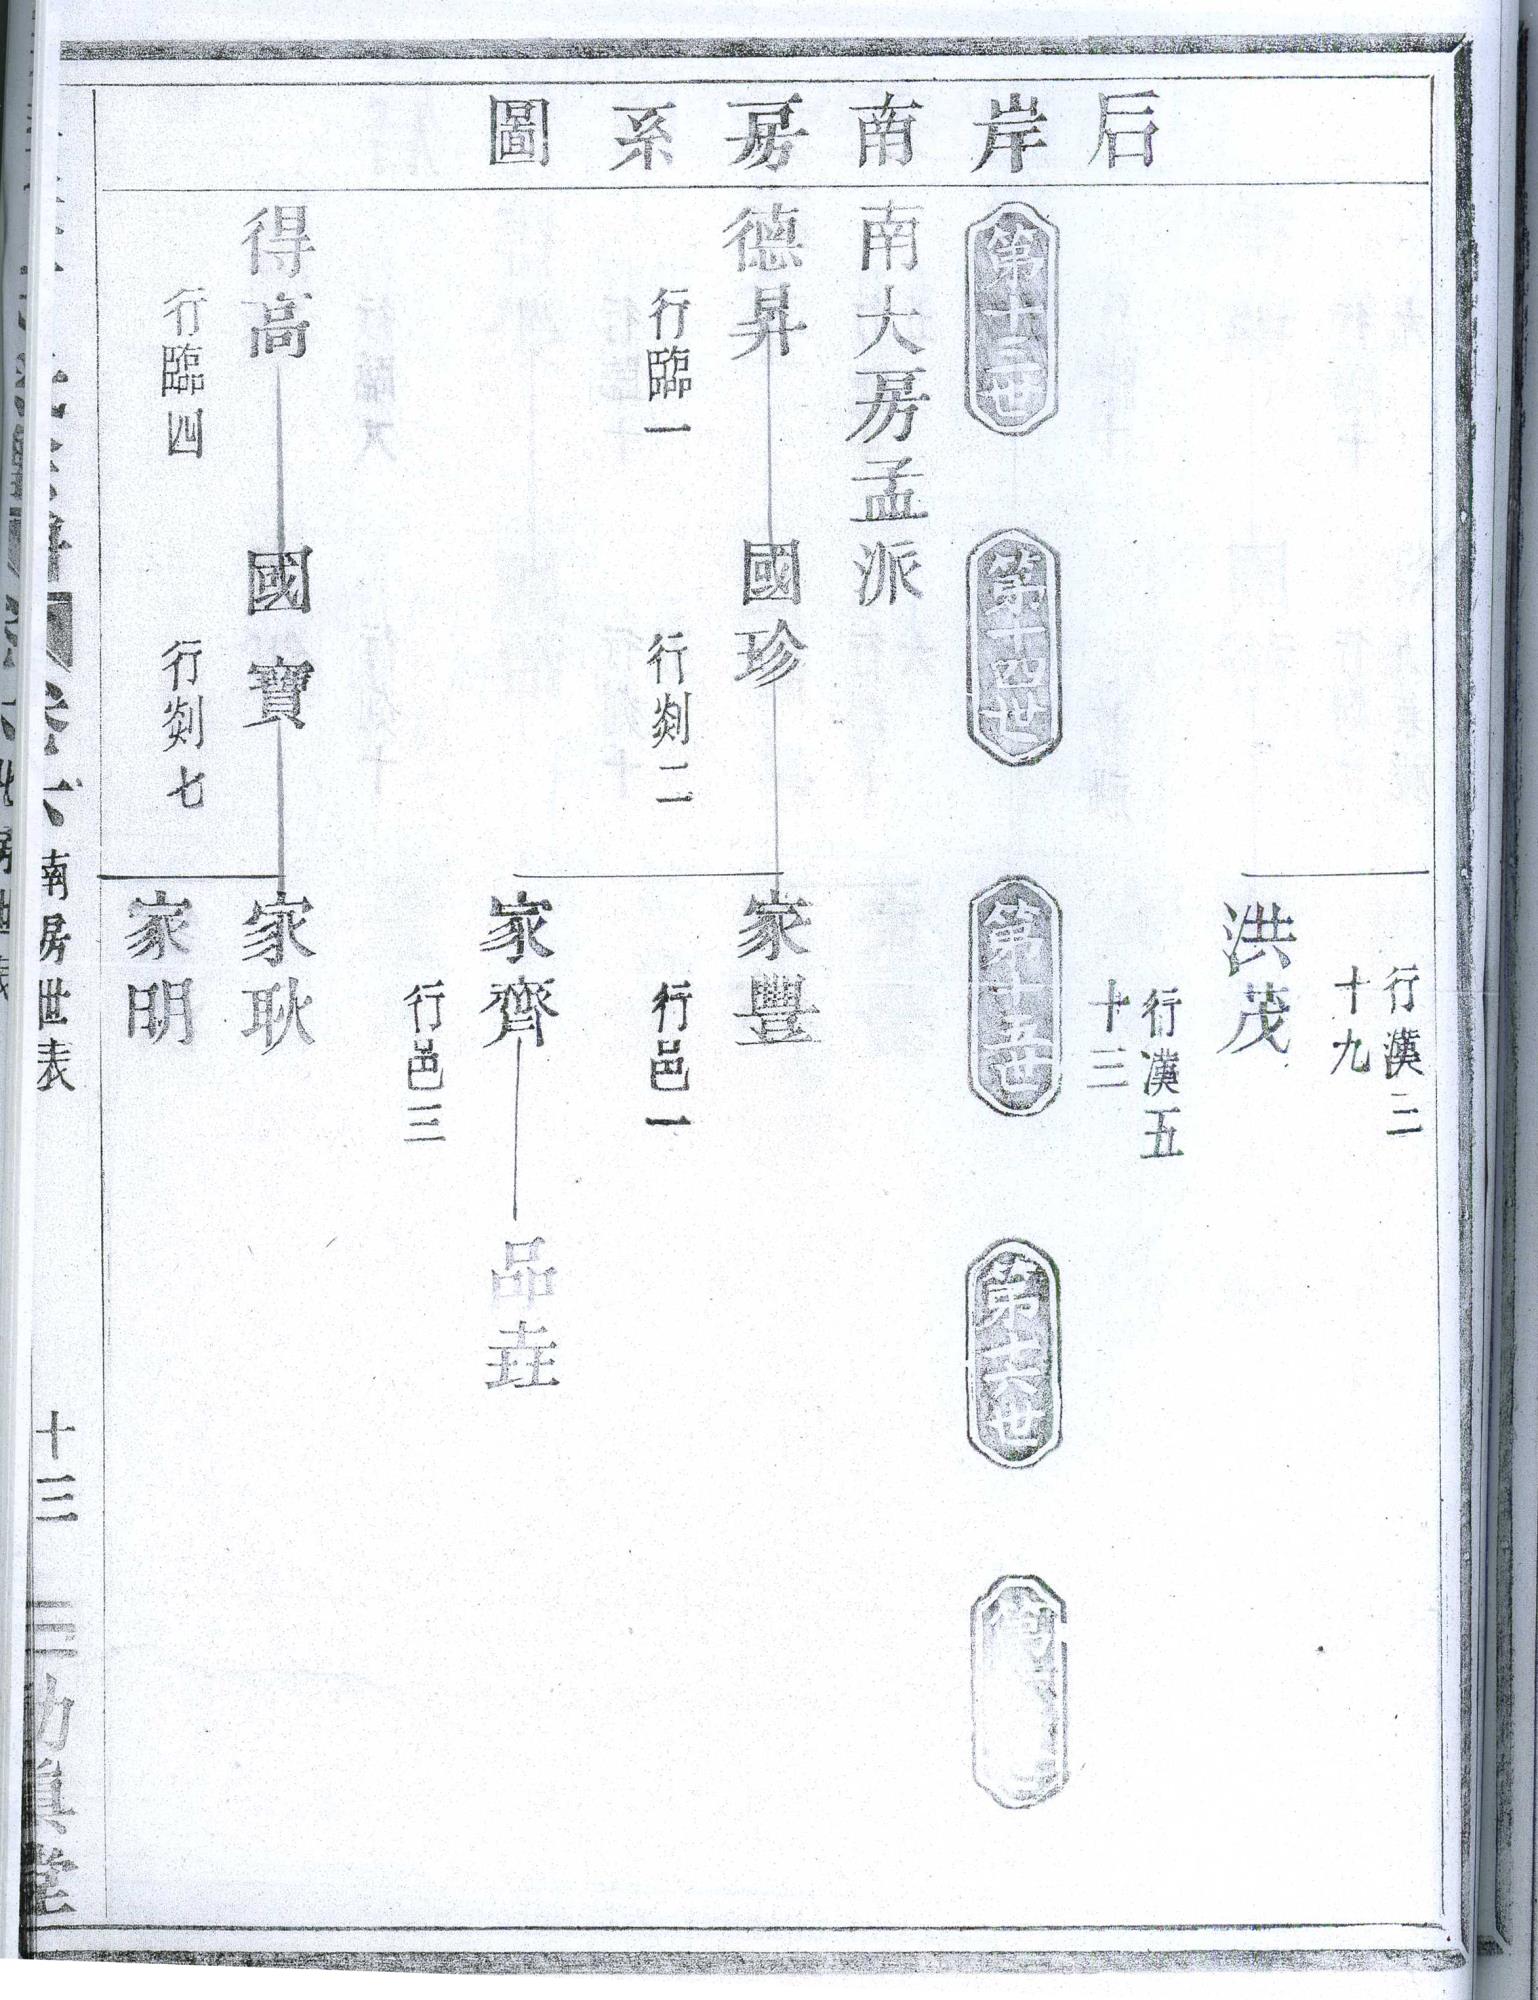 后岸南房系圖
行漢三
十九
洪茂
行漢五
十三
第十三世
第十四世
第十五世
第十六世
第
南大房孟派
德昇
國珍
家豐
行臨一
行剡二
行邑一
家齊
品垚
行邑三
得高
國寶
家耿
行臨四
行剡七
家明
南房世表
十三